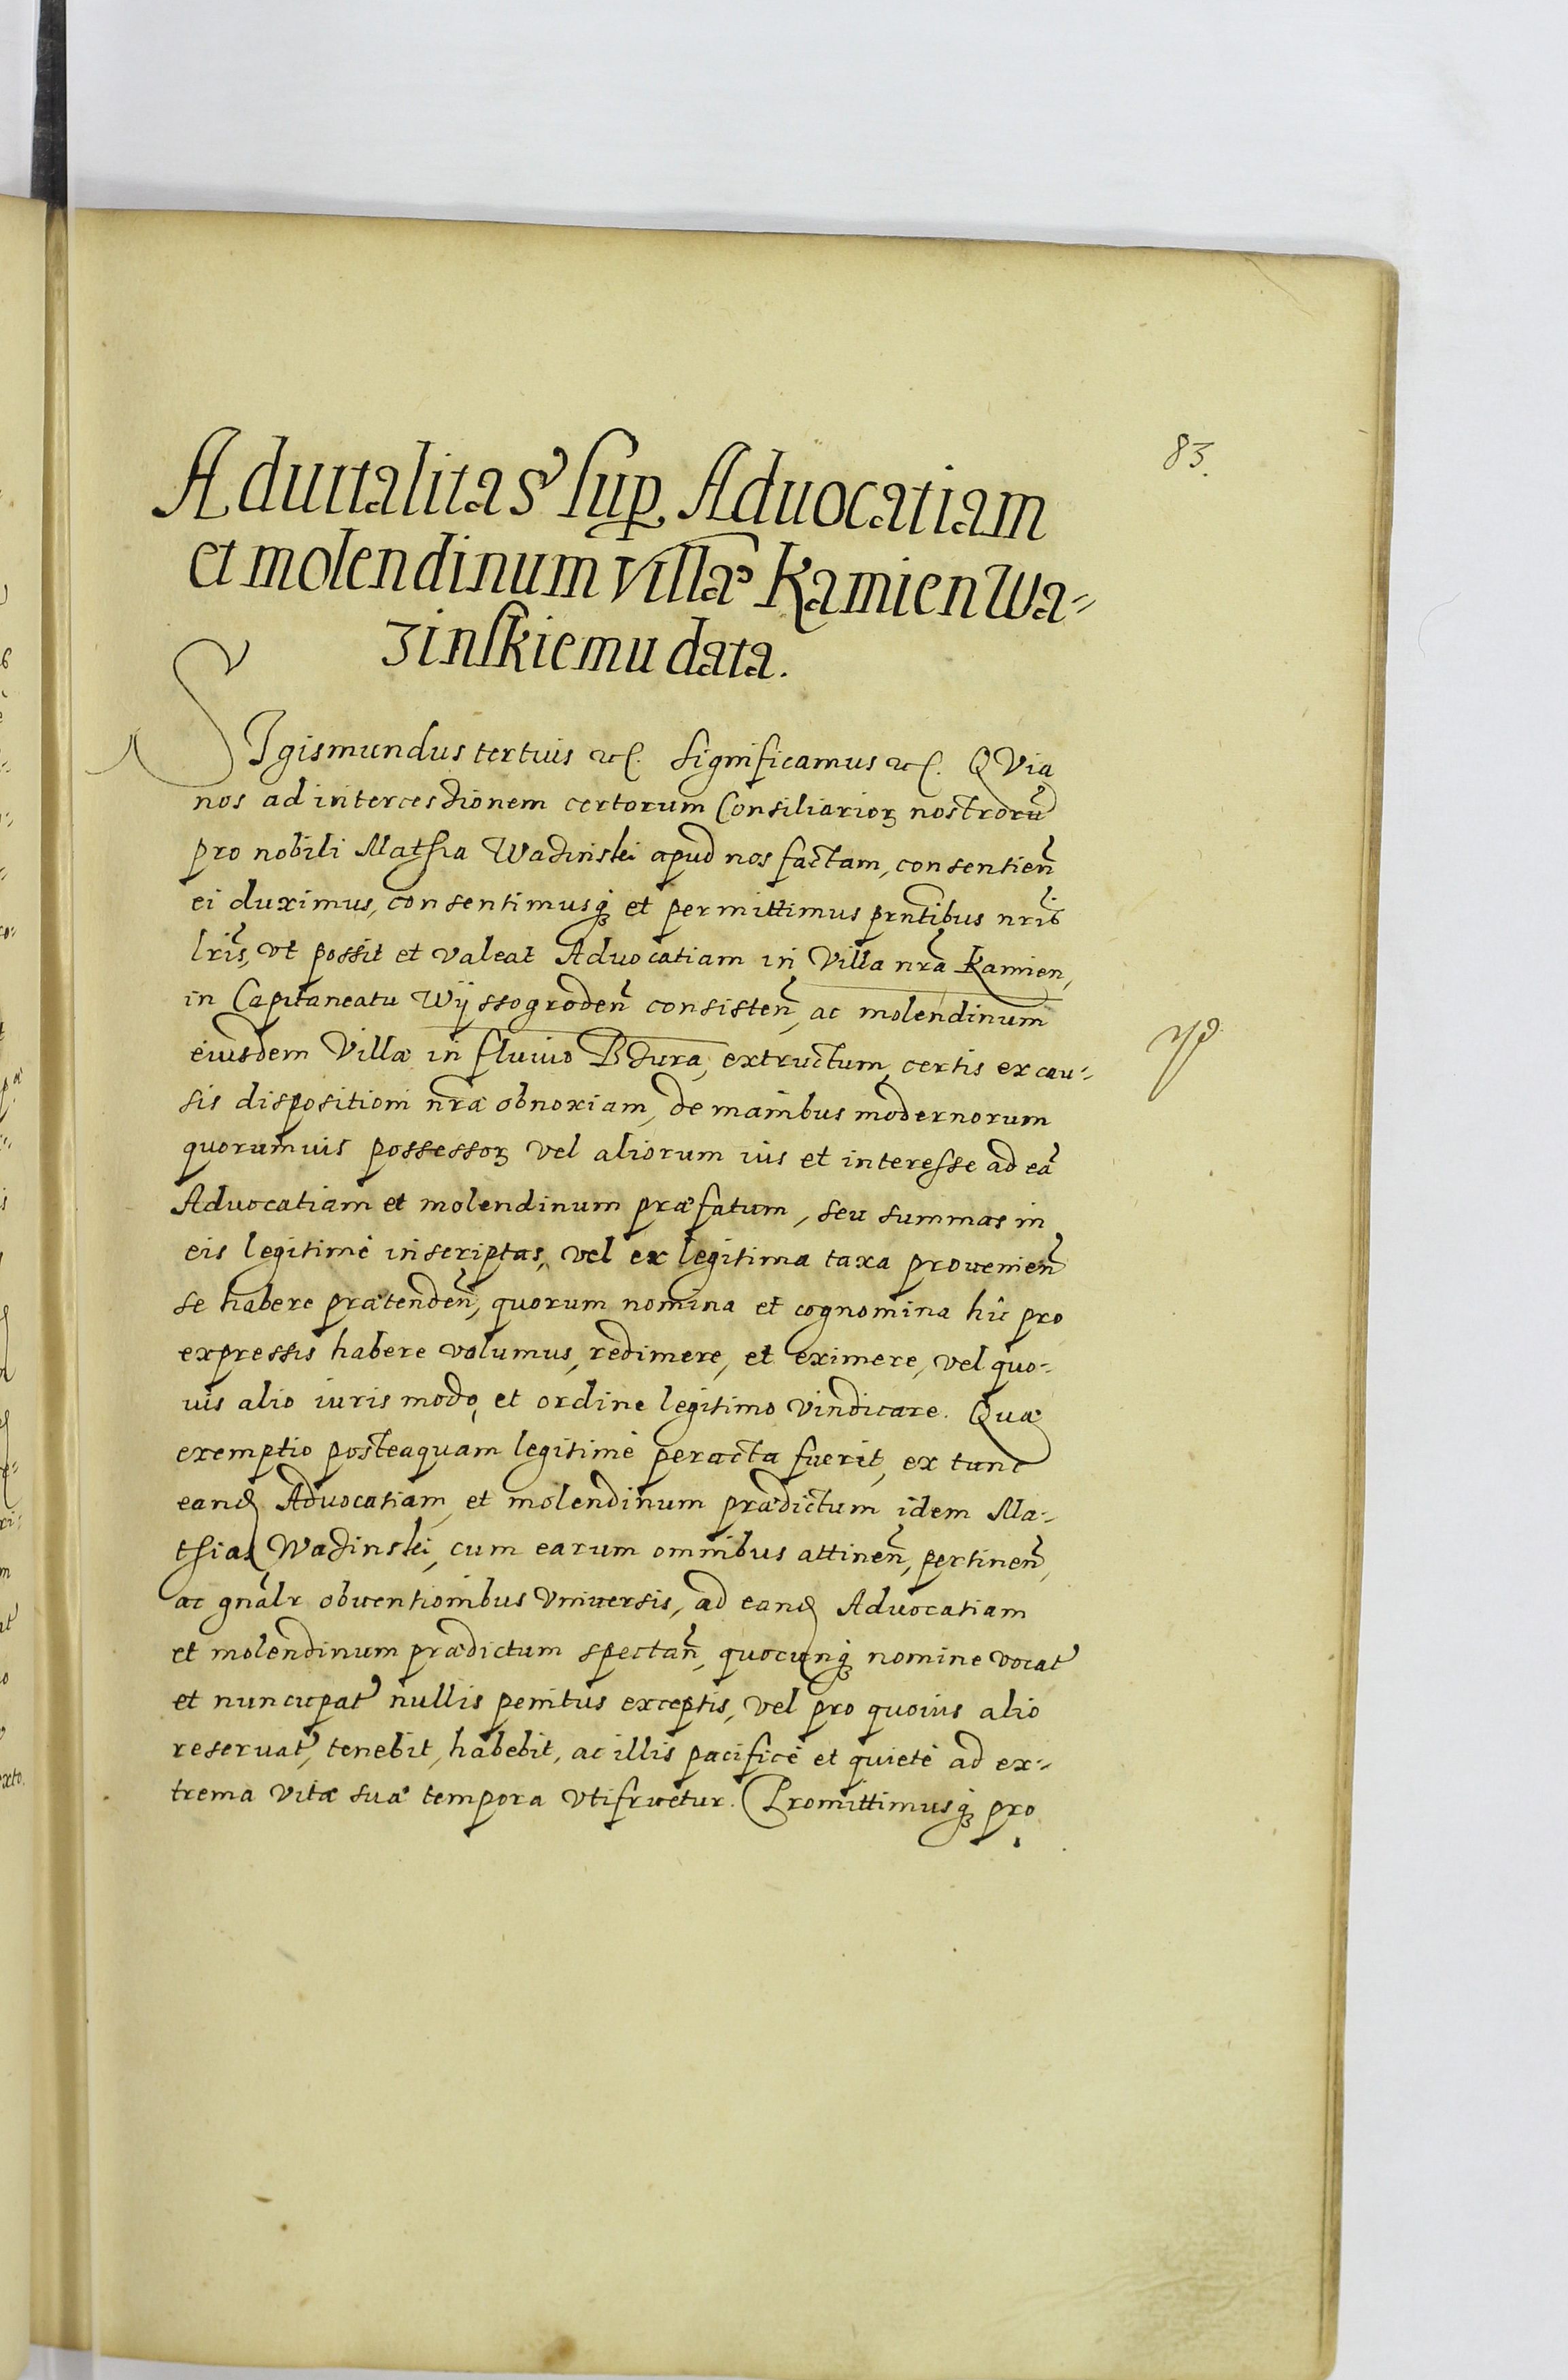 83.
Aduitalitas sup Aduocatiam
et molendinum villæ Kamien Wa=
zinskiemu data.
SIgismundus tertius etc. Significamus etc. QVia
nos ad intercessionem certorum Consiliarioꝝ nostrorũ
pro nobili Mathia Wazinski apud nos factam, consentien̄
ei duximus, consentimusq́ꝫ et permittimus pñtibus nrĩs
lrĩs, vt possit et valeat Aduocatiam in Villa nrã Kamien,
in Capitaneatu Wÿssogroden̄ consisten̄, ac molendinum
eiusdem Villæ in fluuio Bzura, extructum, certis ex cau=
sis dispositioni nræ̃ obnoxiam, de manibus modernorum
quorumuis possessoꝝ vel aliorum ius et interesse ad eã
Aduocatiam et molendinum præfatum, seu summas in
eis legitimè inscriptas, vel ex legitima taxa prouenien̄
se habere prætenden̄, quorum nomina et cognomina hîc pro
expressis habere volumus, redimere, et eximere, vel quo=
uis alio iuris modo, et ordine legitimo vindicare. Quæ
exemptio posteaquam legitimè peracta fuerit, ex tunc
eand Aduocatiam, et molendinum prædictum idem Ma=
thias Wazinski, cum earum omnibus attinen̄, pertinen̄,
ac gnãlr obuentionibus vniuersis, ad eand Aduocatiam
et molendinum prædictum spectan̄, quocunq́ꝫ nomine vocat
et nuncupat nullis penitus exceptis, vel pro quouis alio
reseruat, tenebit, habebit, ac illis pacificè et quietè ad ex=
trema vitæ suæ tempora vtifruetur. Promittimusq́ꝫ pro